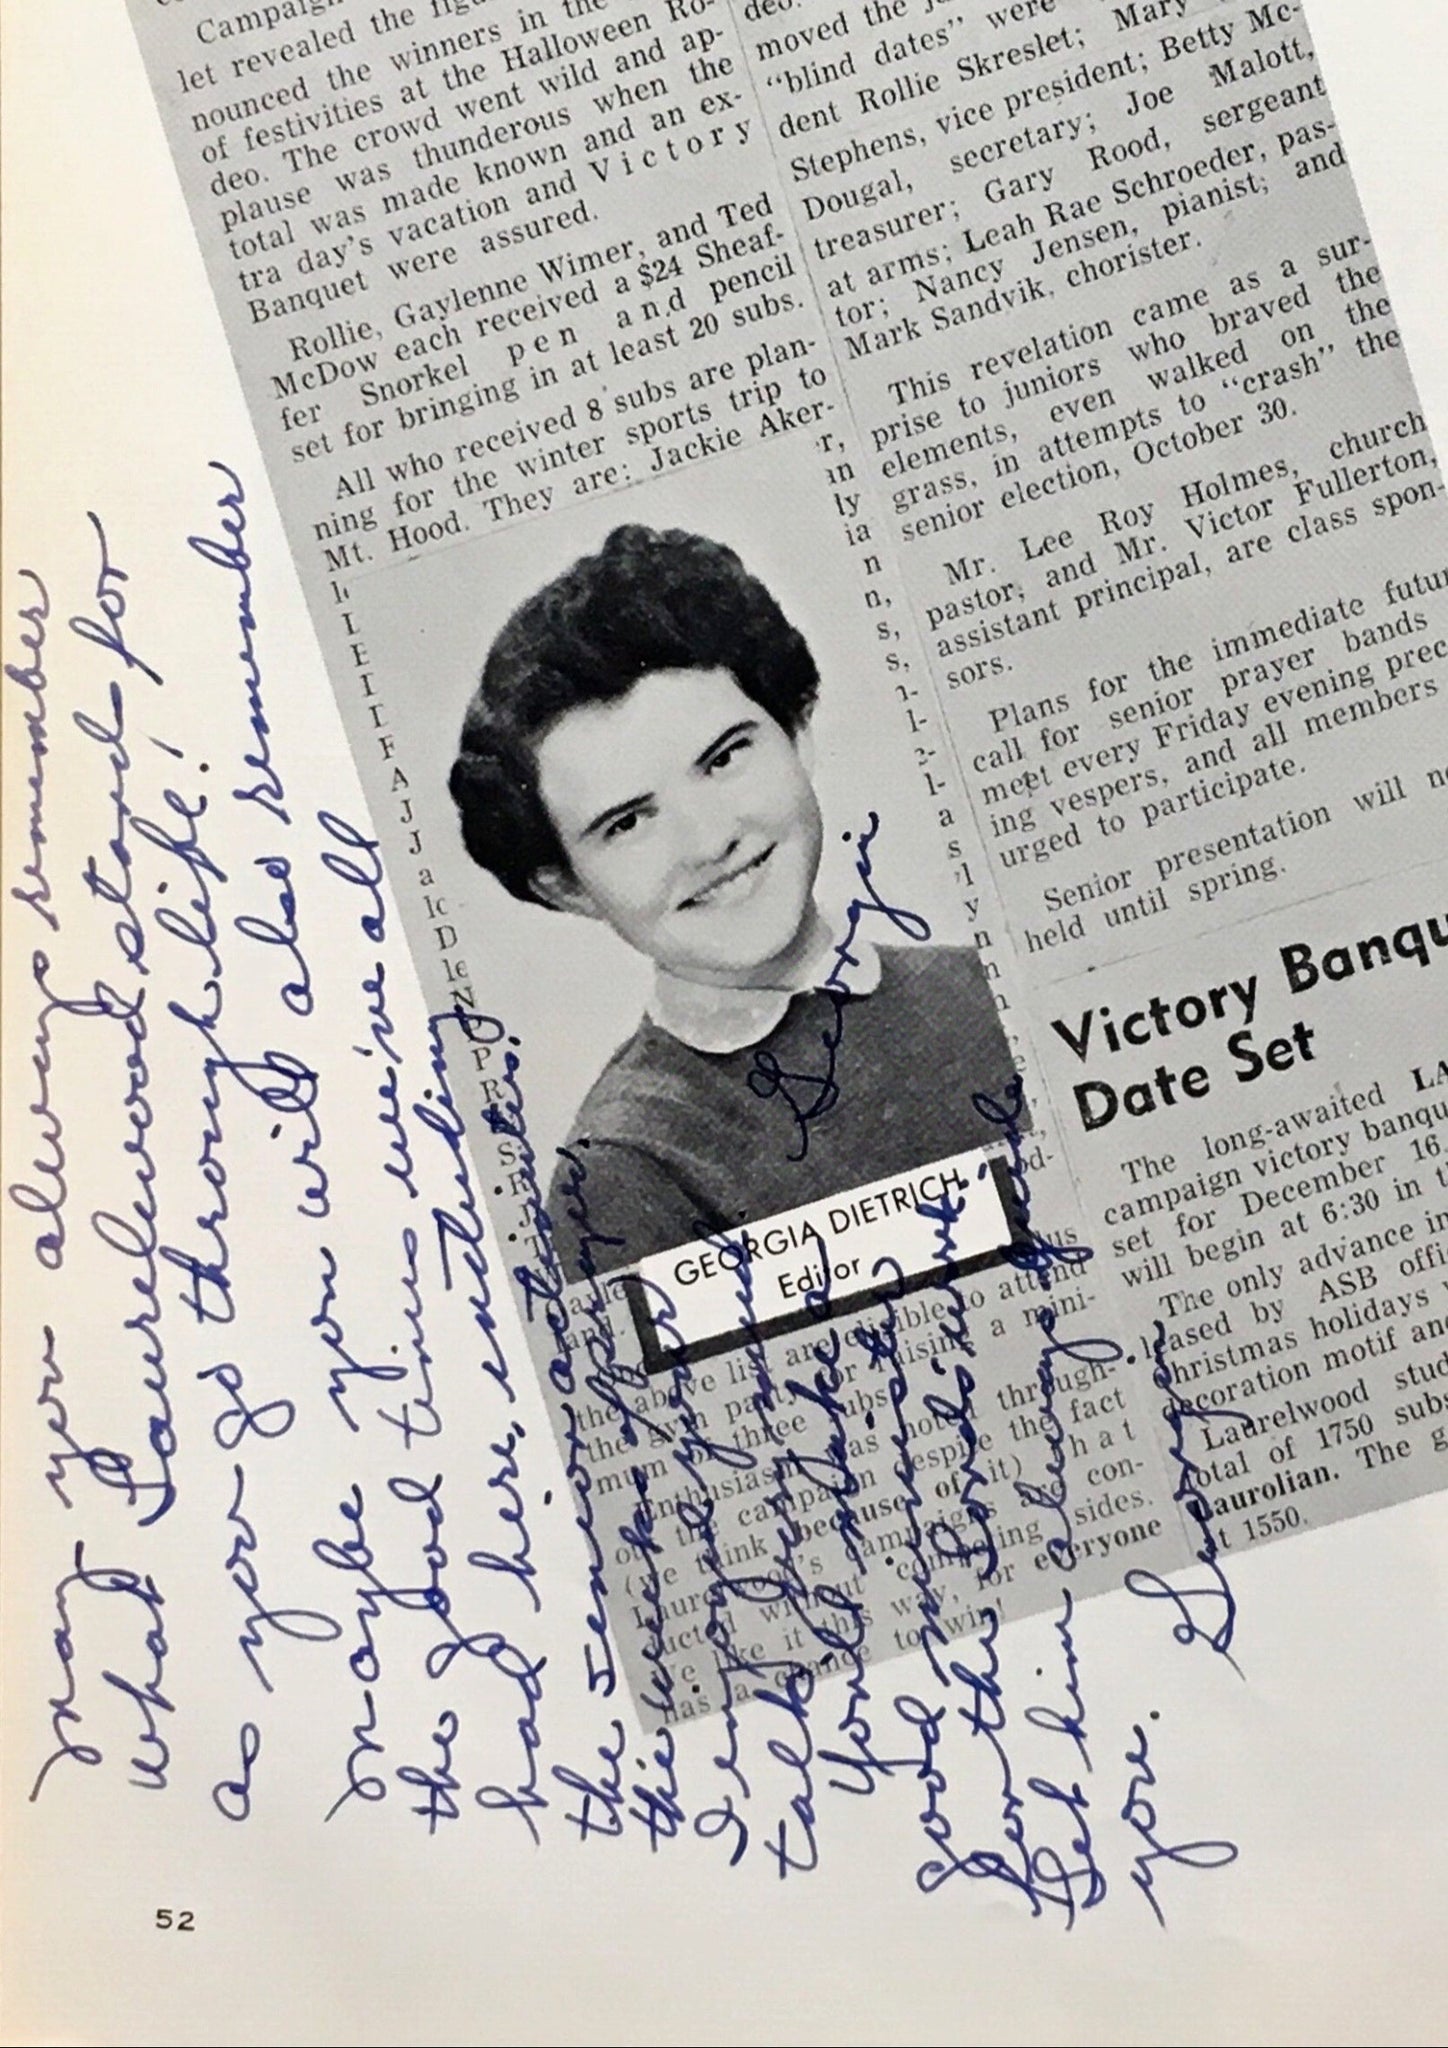 Campaign
let revealed the
nounced the winners in the
of festivities at the Halloween Ro-
deo. The crowd went wild and ap-
plause was thunderous when the
total was made known and an ex-
tra day's vacation and Victory
Banquet were assured.
Rollie, Gaylenne Wimer, and Ted
McDow each received a $24 Sheaf-
fer Snorkel pen and pencil
set for bringing in at least 20 subs.
All who received 8 subs are plan-
ning for the winter sports trip to
Mt. Hood. They are: Jackie Aker-
GEORGIA DIETRICH
Editor
the above list are eligible to attend
the gym party for raising a mini-
mum of three subs.
Enthusiasm was noted through-
out the campaign despite the fact
(we think because of it) that
Laurelwood's campaigns are con-
ducted without competing sides.
We like it this way, for everyone
has a chance to win!
deo.
moved the
"blind dates" were
dent Rollie Skreslet; Mary
Stephens, vice president; Betty Mc-
Dougal, secretary; Joe Malott,
treasurer; Gary Rood, sergeant
at arms; Leah Rae Schroeder, pas-
tor; Nancy Jensen, pianist; and
Mark Sandvik, chorister.
This revelation came as a sur-
prise to juniors who braved the
elements, even walked on the
grass, in attempts to "crash" the
senior election, October 30.
Mr. Lee Roy Holmes, church
pastor; and Mr. Victor Fullerton,
assistant principal, are class spon-
sors.
Plans for the immediate futur
call for senior prayer bands
meet every Friday evening prec
ing vespers, and all members
urged to participate.
Senior presentation will no
held until spring.
Victory Banqu
Date Set
The long-awaited LA
campaign victory banqu
set for December 16.
will begin at 6:30 in t
The only advance in
leased by ASB offi
Christmas holidays
decoration motif and
Laurelwood stud
total of 1750 subs
Laurolian. The g
t 1550.
May you always remember
what Laurelwood stands for
as you go through life!
Maybe you will also remember
the good times we've all
had here, including
the senior activities.
the week of prayer,
I enjoyed your
talk.
You'll make a
good minister
for the Lord's work.
Let him always guide
you.
Georgia
Georgie
52